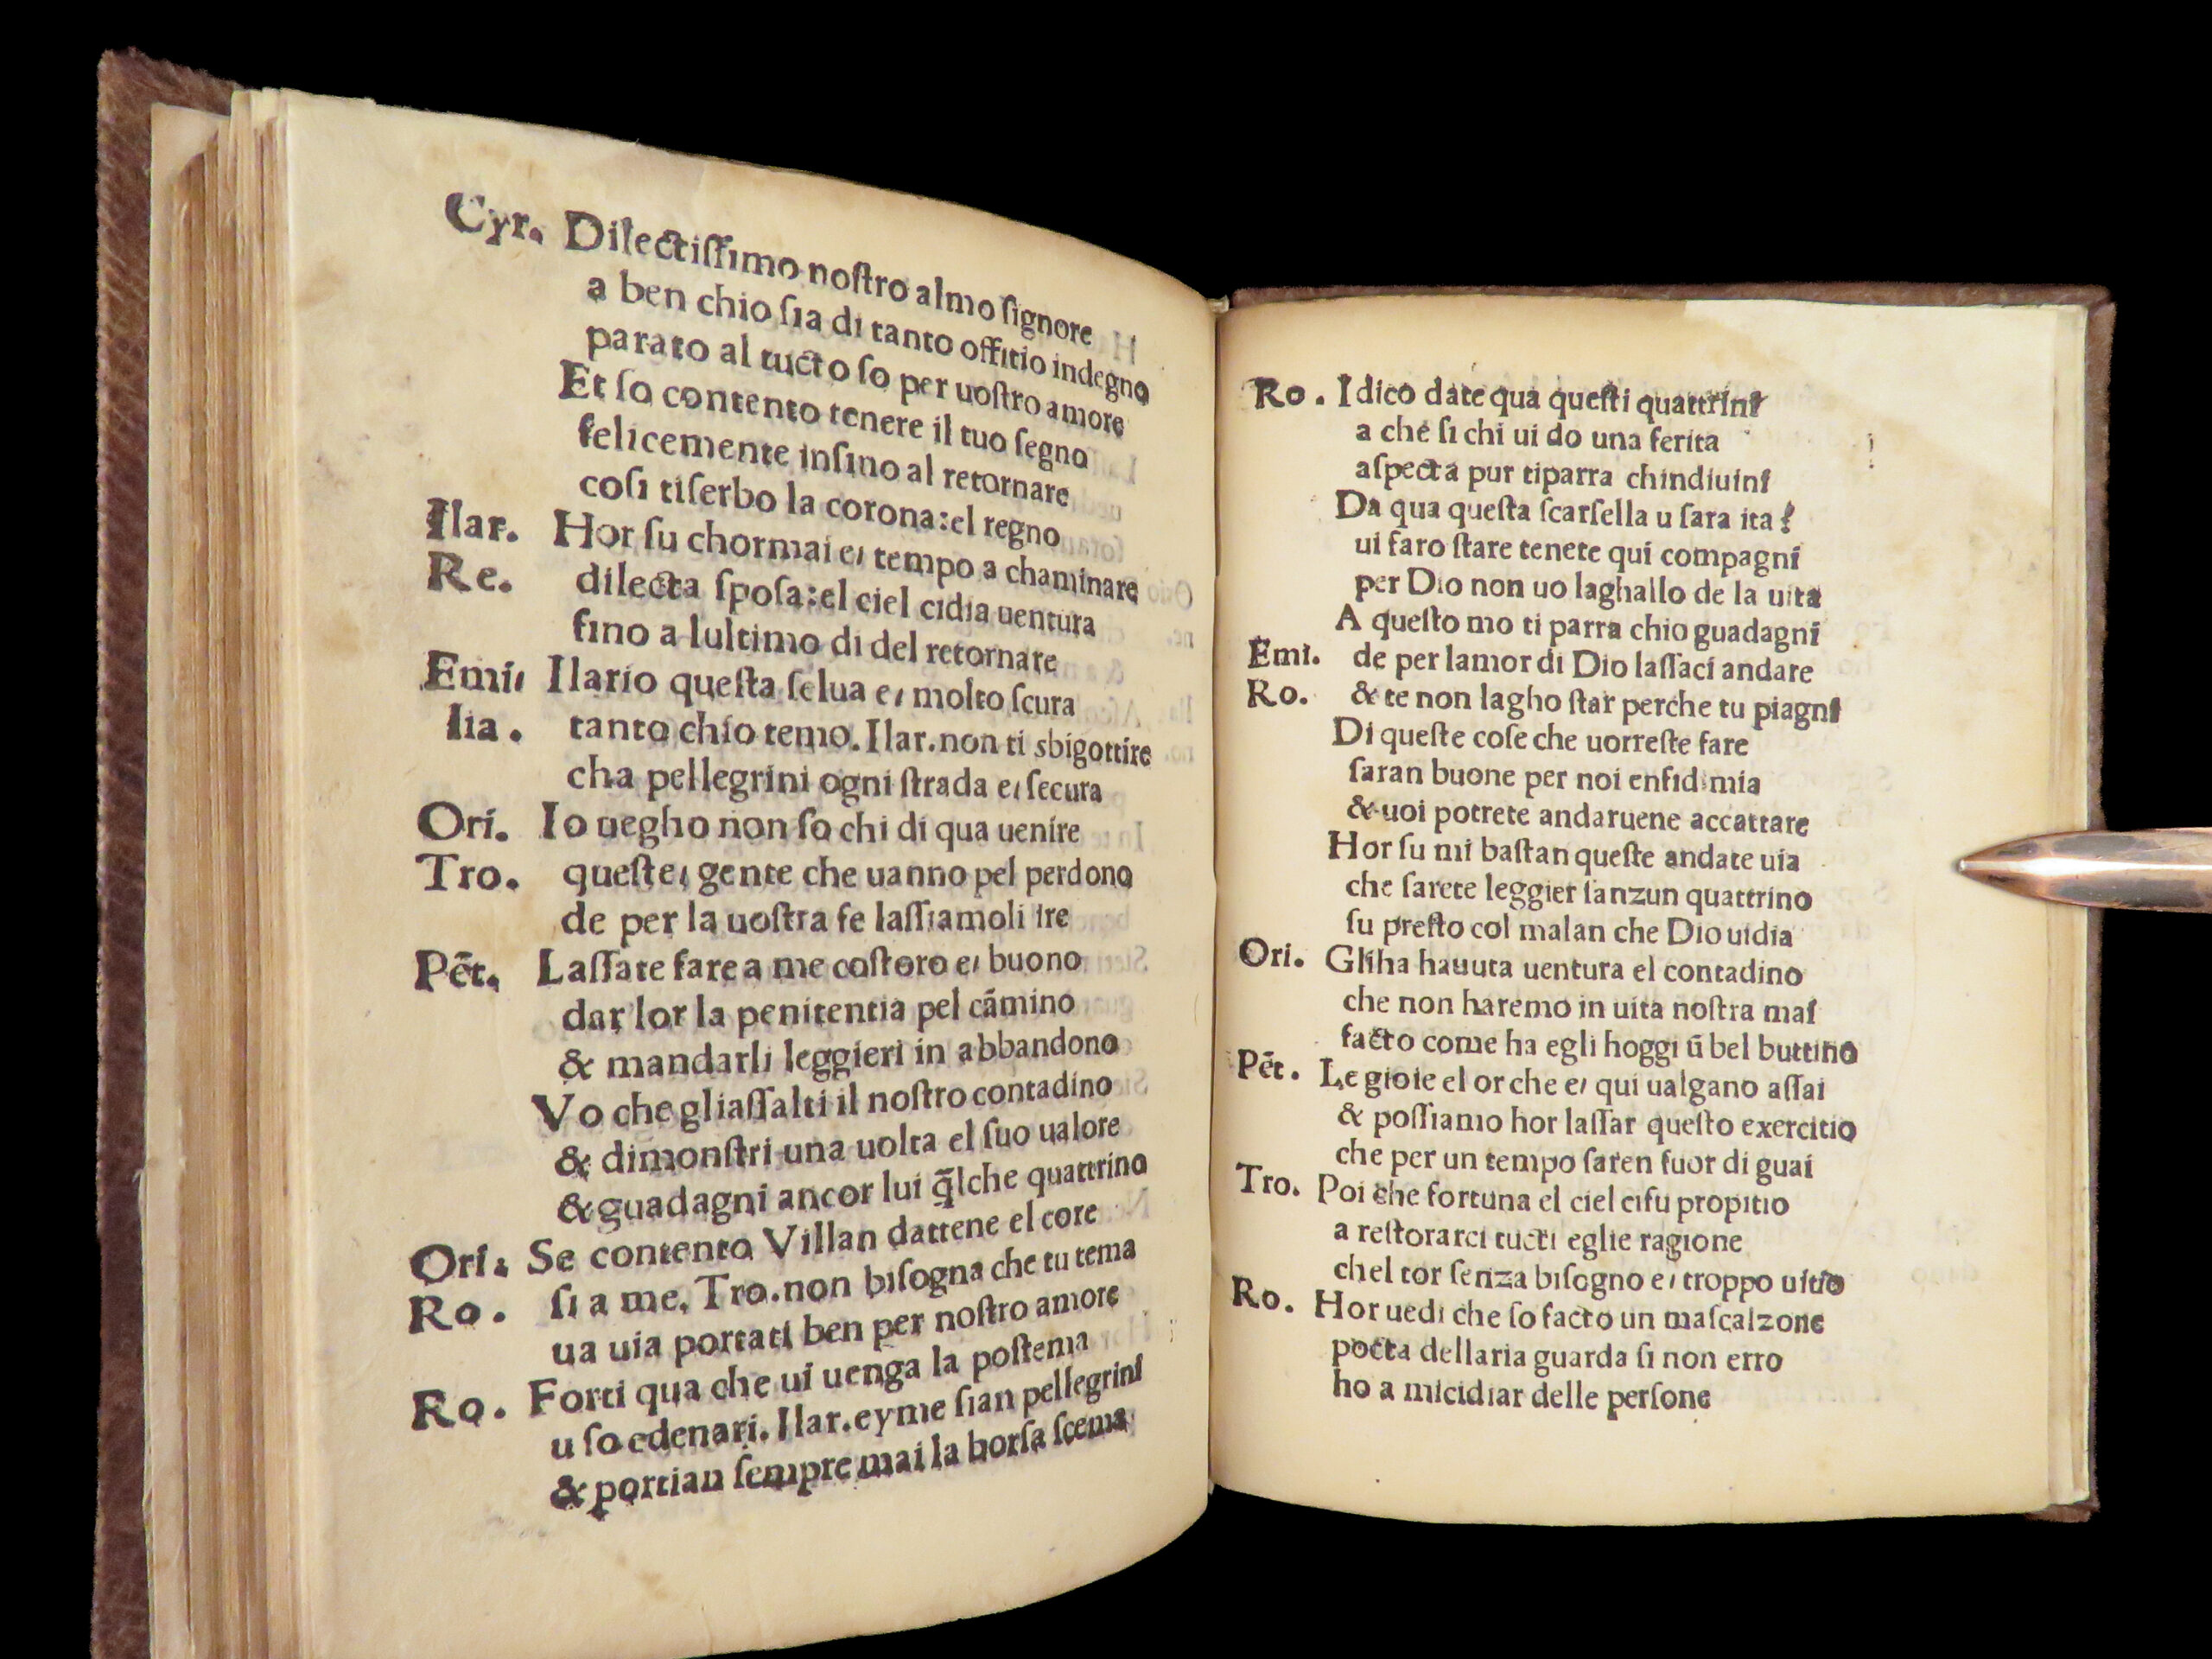 Cyr. Dilectiſſimo noſtro almo ſignore
a ben chio ſia di tanto offitio indegno
parato al tucto ſo per uoſtro amore
Et ſo contento tenere il tuo ſegno
felicemente inſino al retornare
coſi tiſerbo la corona:el regno
Ilar. Hor ſu chormai eı tempo a chaminare
Re. dilecta ſpoſa:el ciel cidia uentura
fino a lultimo di del retornare
Emiı Ilario queſta ſelua eı molto ſcura
lia. tanto chio temo. Ilar.non ti sbigottire
cha pellegrini ogni ſtrada eı ſecura
Ori. Io uegho non ſo chi di qua uenire
Tro. queſteı gente che uanno pel perdono
de per la uoſtra fe laſſiamoli ire
Pēt. Laſſate fare a me coſtoro eı buono
dar lor la penitentia pel cāmino
& mandarli leggieri in abbandono
Vo che gliaſſalti il noſtro contadino
& dimonſtri una uolta el ſuo ualore
& guadagni ancor lui q̄lche quattrino
Ori. Se contento Villan dattene el core
Ro. ſi a me. Tro.non biſogna che tu tema
ua uia portati ben per noſtro amore
Ro. Forti qua che ui uenga la poſtema
u ſo edenari. Ilar.eyme ſian pellegrini
& portian ſempre mai la borſa ſcema
Ro. I dico date qua queſti quattrini
a che ſi chi ui do una ferita
aſpecta pur tiparra chindiuini
Da qua queſta ſcarſella u ſara ita?
ui faro ſtare tenete qui compagni
per Dio non uo laghallo de la uita
A queſto mo ti parra chio guadagni
Emi. de per lamor di Dio laſſaci andare
Ro. & te non lagho ſtar perche tu piagni
Di queſte coſe che uorreſte fare
ſaran buone per noi enfidımia
& uoi potrete andaruene accattare
Hor ſu mi baſtan queſte andate uia
che ſarete leggier ſanzun quattrino
ſu preſto col malan che Dio uidia
Ori. Gliha hauuta uentura el contadino
che non haremo in uita noſtra mai
facto come ha egli hoggi ū bel buttino
Pēt. Le gioie el or che eı qui ualgano aſſai
& poſſiamo hor laſſar queſto exercitio
che per un tempo ſaren fuor di guai
Tro. Poi che fortuna el ciel cifu propitio
a reſtorarci tucti eglie ragione
chel tor ſenza biſogno eı troppo uitio
Ro. Hor uedi che ſo facto un maſcalzone
pocta dellaria guarda ſi non erro
ho a micidiar delle perſone